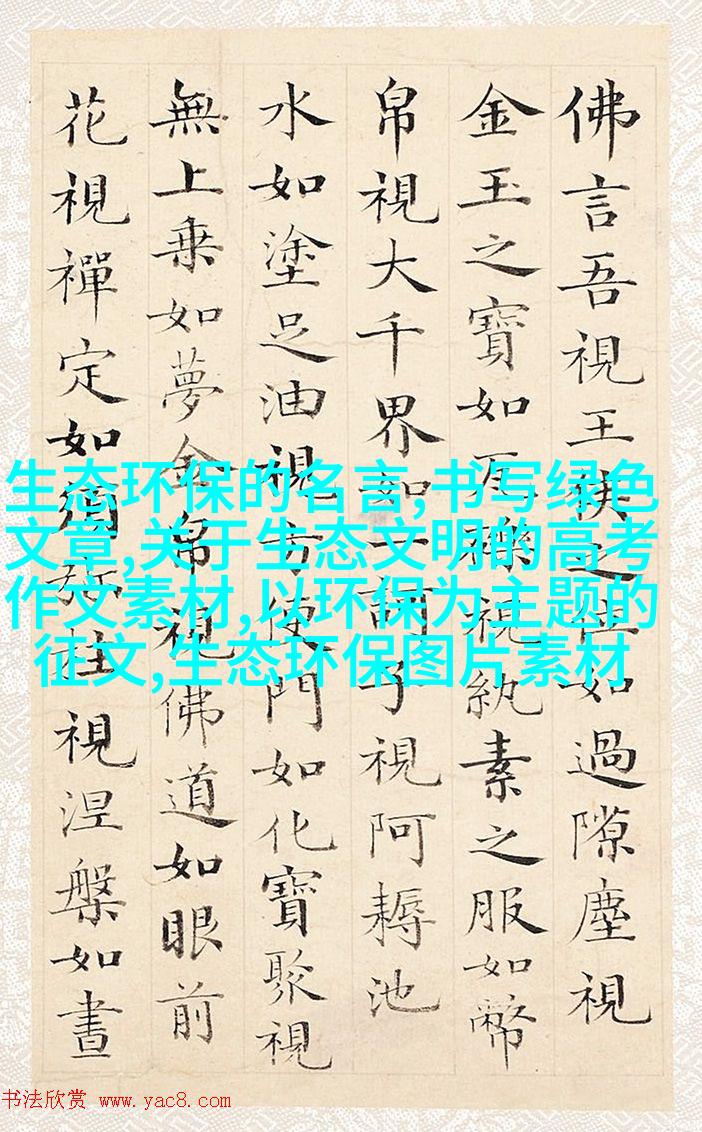 佛言吾視王侯之位如過隙塵視
金玉之寶如瓦礫視紈素之服如幣
帛視大千界如一訶子視阿耨池
水如塗足油視方便門如化寶聚視
無上乗如夢金帛視佛道如眼前
花視禪定如須弥柱視涅槃如晝
生态环保的名言,书写绿色
文章,关于生态文明的高考
作文素材,以环保为主题的
征文,生态环保图片素材
书法欣赏 www.yac8.com